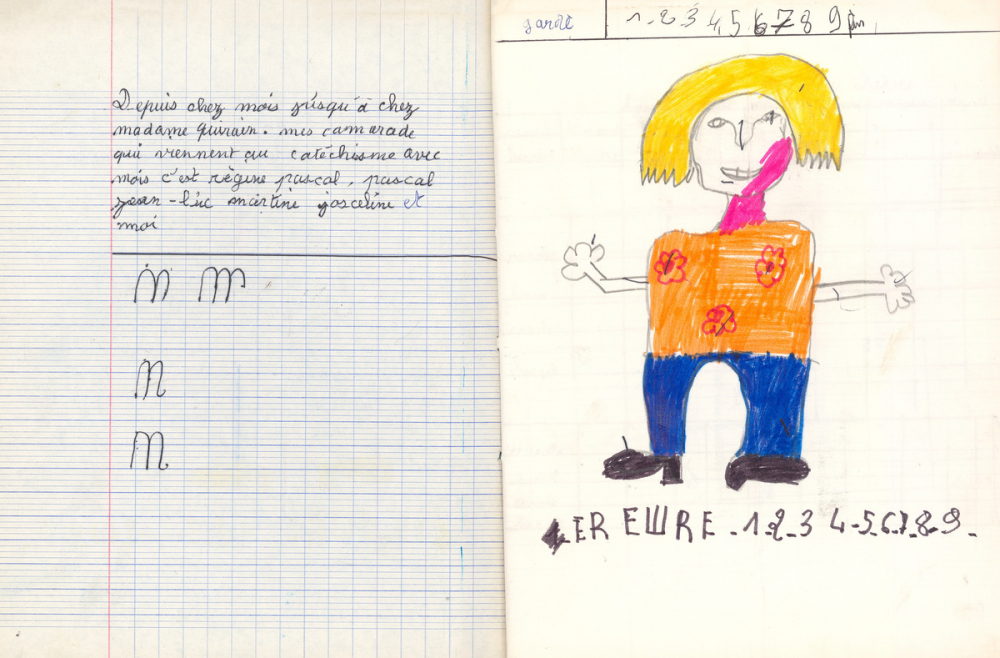 Depuis chez mois jusqu'à chez
madame Guirain. mes camarade
qui viennent au catéchisme avec
mois c'est règine pascal, pascal
jean-luc martine josceline et
moi
M M
M
M
1.2 3 4,5 6 7 8 9
ER EWRE.1.2.3 4-5.6.7.8.9.